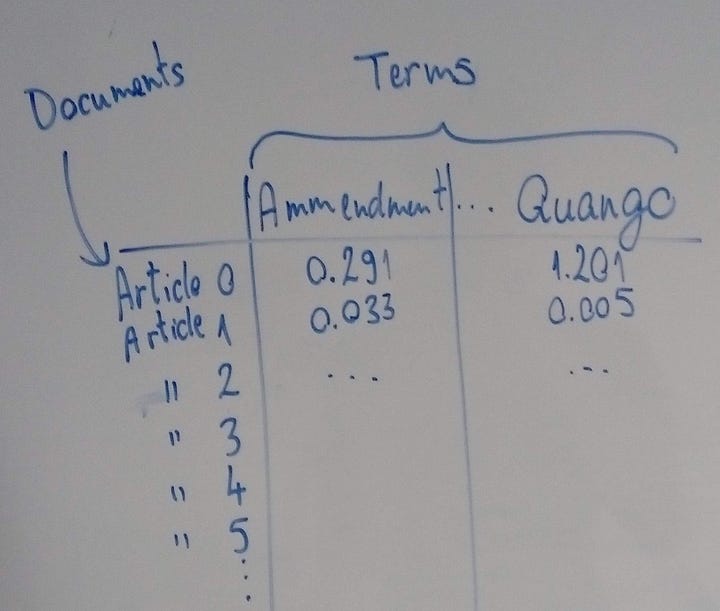 Documents
Terms
Ammendment ... Quango
Article 0 0.291 1.201
Article 1 0.033 0.005
" 2 ... ...
" 3
" 4
" 5
⋮